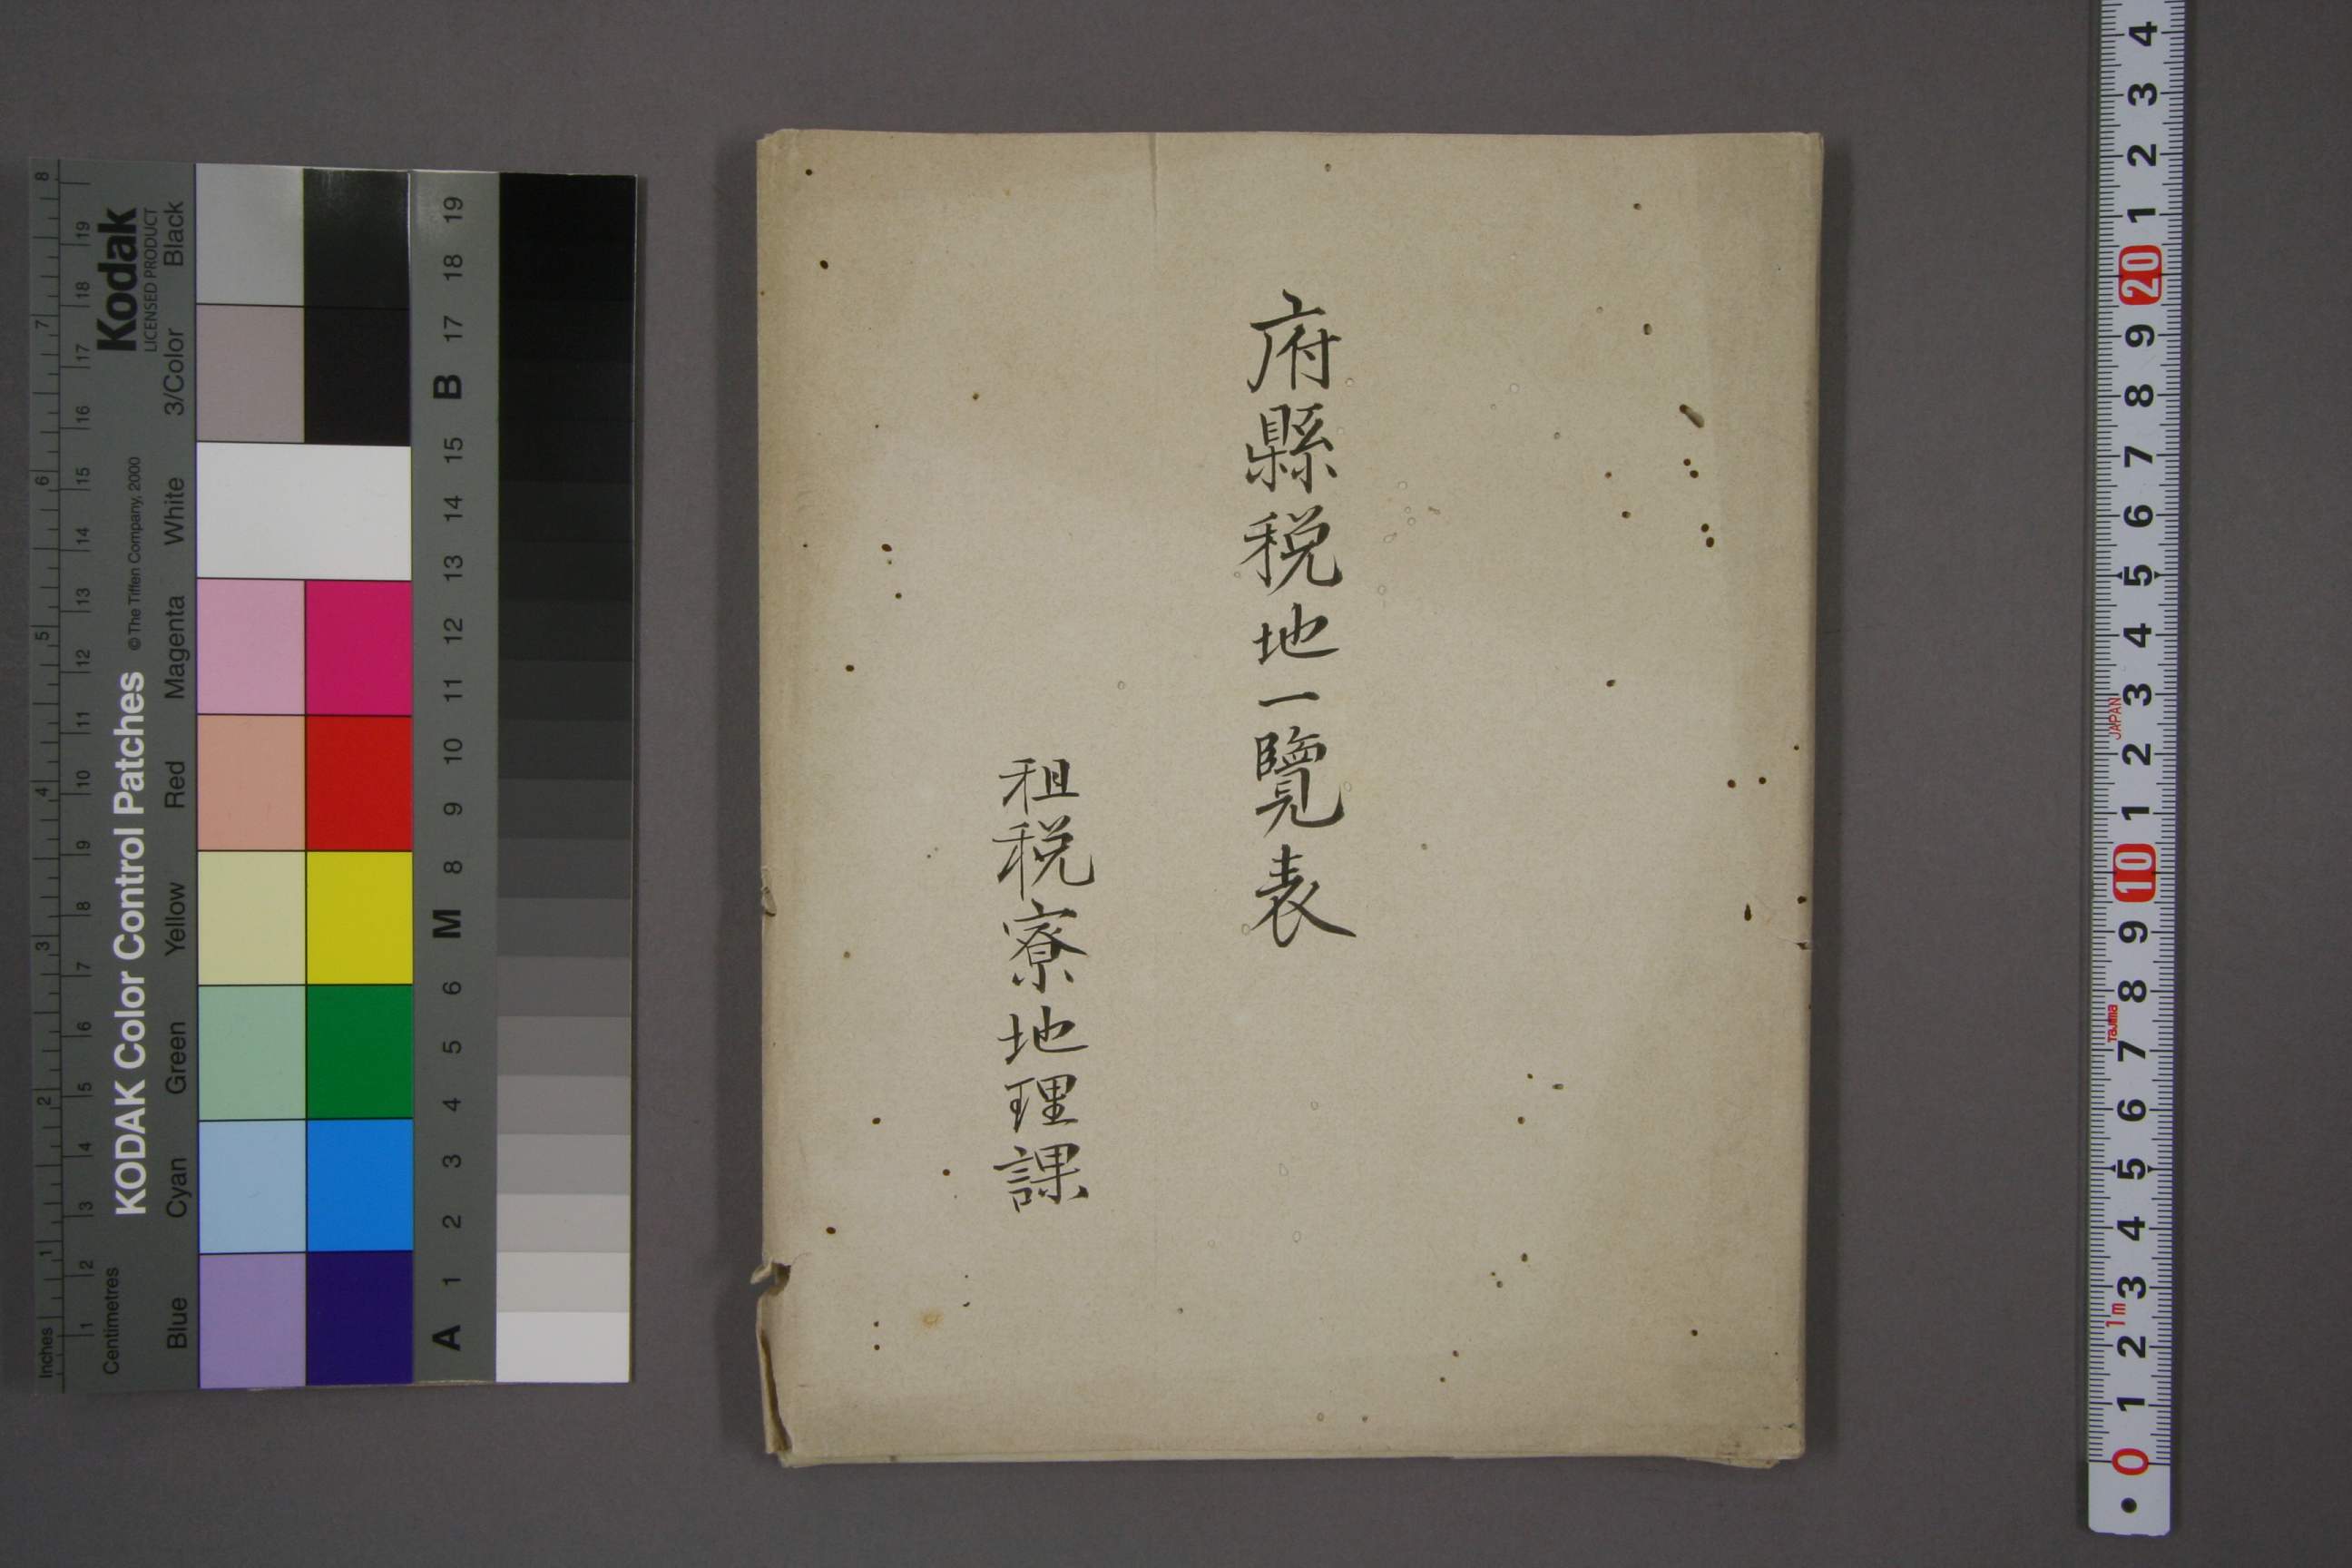 府縣税地一覽表
租税寮地理課
KODAK Color Control Patches
© The Tiffen Company, 2000
Kodak
LICENSED PRODUCT
Inches
1 2 3 4 5 6 7 8
Centimetres
1 2 3 4 5 6 7 8 9 10 11 12 13 14 15 16 17 18 19
Blue Cyan Green Yellow Red Magenta White 3/Color Black
A 1 2 3 4 5 6 M 8 9 10 11 12 13 14 15 B 17 18 19
0 1 2 3 4 5 6 7 8 9 10 1 2 3 4 5 6 7 8 9 20 1 2 3 4
1m
Tajima
JAPAN